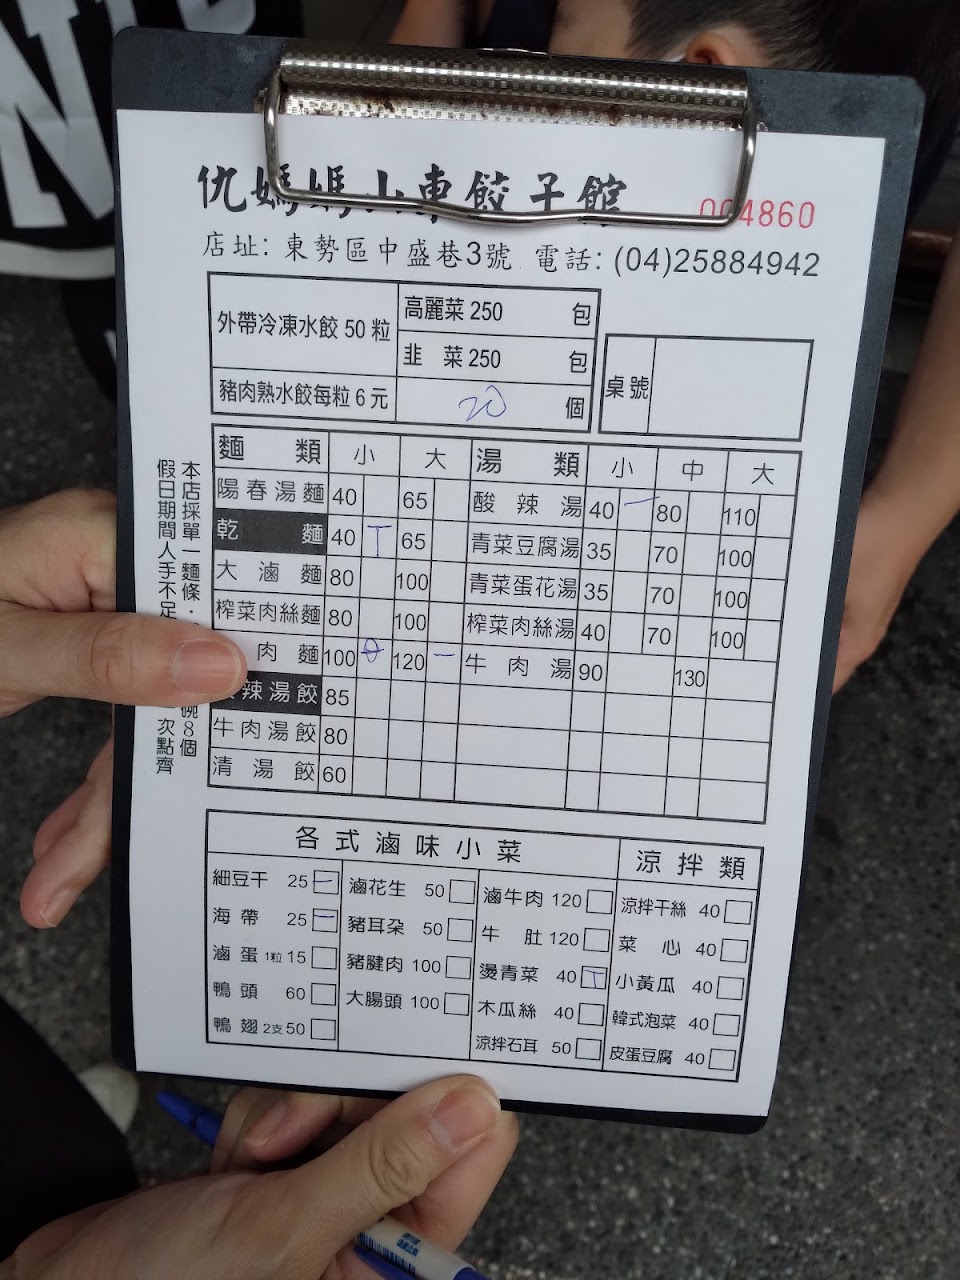 仇媽媽山東餃子館
004860
店址: 東勢區中盛巷3號 電話: (04)25884942
外帶冷凍水餃 50 粒 高麗菜 250 包
韭 菜 250 包
豬肉熟水餃每粒 6 元 20 個
桌號
麵 類 小 大 湯 類 小 中 大
陽春湯麵 40 65 酸辣湯 40 一 80 110
乾 麵 40 T 65 青菜豆腐湯 35 70 100
大滷麵 80 100 青菜蛋花湯 35 70 100
榨菜肉絲麵 80 100 榨菜肉絲湯 40 70 100
肉麵 100 120 一 牛肉湯 90 130
辣湯餃 85
牛肉湯餃 80
清湯餃 60
本店採單一麵條
碗8個
假日期間人手不足
次點齊
各式滷味小菜 涼拌類
細豆干 25 一 滷花生 50 滷牛肉 120 涼拌干絲 40
海帶 25 一 豬耳朵 50 牛肚 120 菜心 40
滷蛋 1粒 15 豬腱肉 100 燙青菜 40 T 小黃瓜 40
鴨頭 60 大腸頭 100 木瓜絲 40 韓式泡菜 40
鴨翅 2支 50 涼拌石耳 50 皮蛋豆腐 40